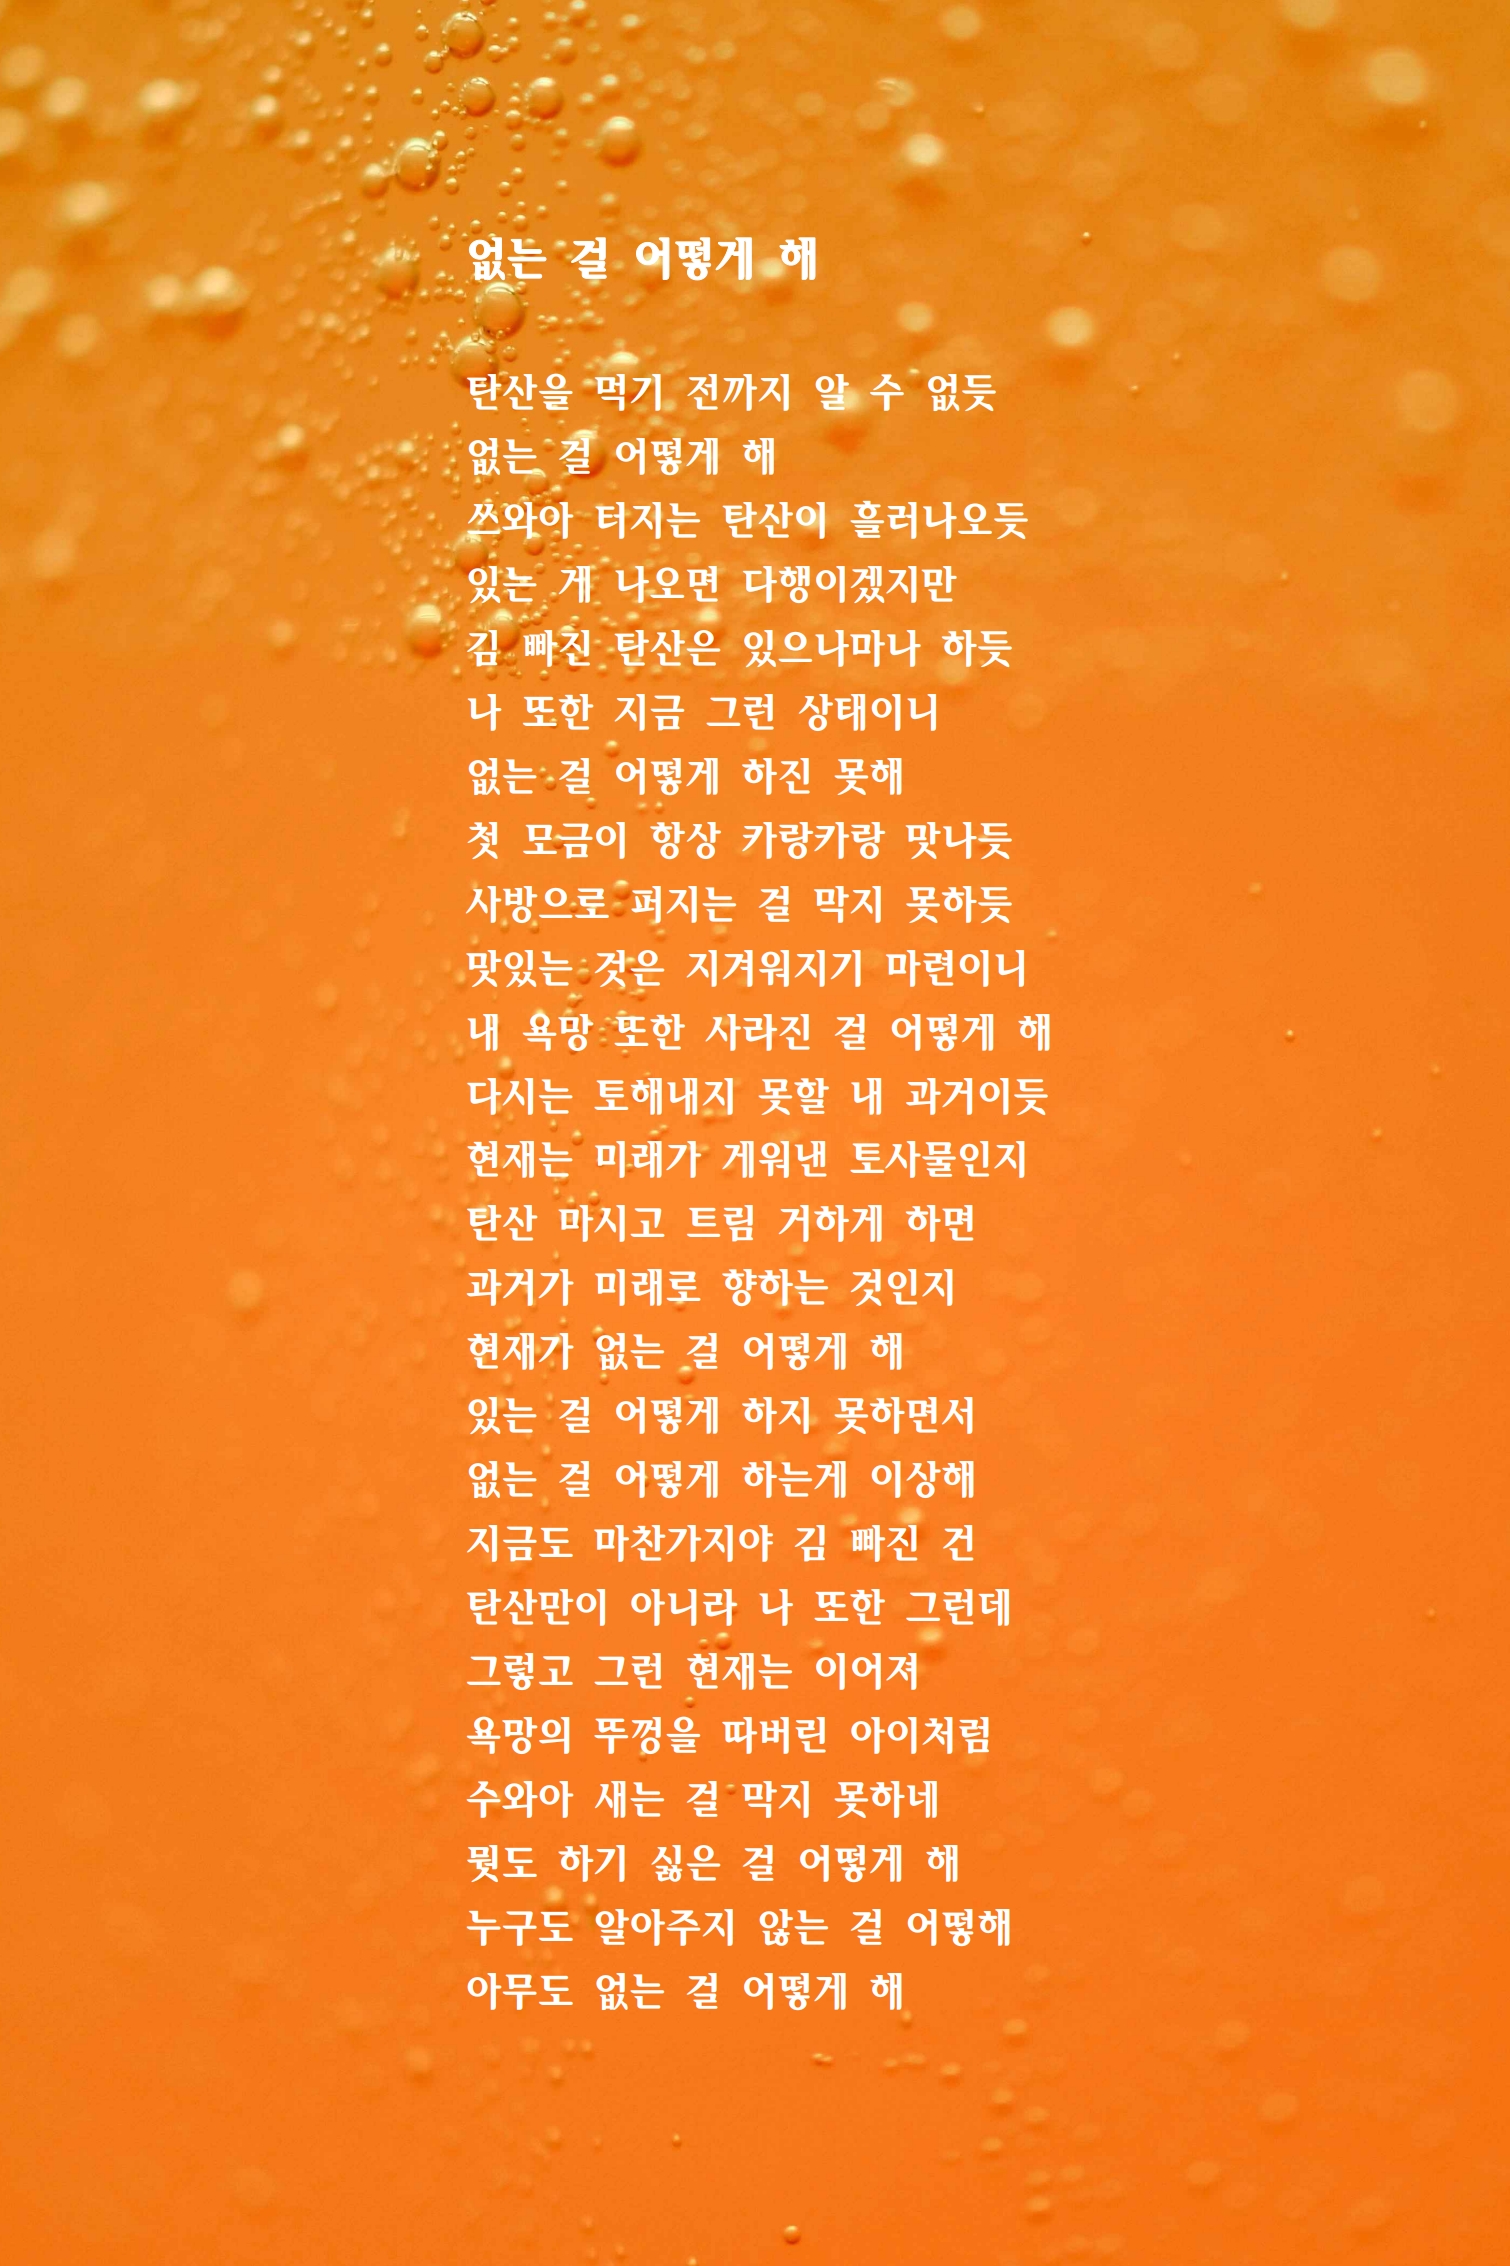 없는 걸 어떻게 해
탄산을 먹기 전까지 알 수 없듯
없는 걸 어떻게 해
쓰와아 터지는 탄산이 흘러나오듯
있는 게 나오면 다행이겠지만
김 빠진 탄산은 있으나마나 하듯
나 또한 지금 그런 상태이니
없는 걸 어떻게 하진 못해
첫 모금이 항상 카랑카랑 맛나듯
사방으로 퍼지는 걸 막지 못하듯
맛있는 것은 지겨워지기 마련이니
내 욕망 또한 사라진 걸 어떻게 해
다시는 토해내지 못할 내 과거이듯
현재는 미래가 게워낸 토사물인지
탄산 마시고 트림 거하게 하면
과거가 미래로 향하는 것인지
현재가 없는 걸 어떻게 해
있는 걸 어떻게 하지 못하면서
없는 걸 어떻게 하는게 이상해
지금도 마찬가지야 김 빠진 건
탄산만이 아니라 나 또한 그런데
그렇고 그런 현재는 이어져
욕망의 뚜껑을 따버린 아이처럼
수와아 새는 걸 막지 못하네
뭣도 하기 싫은 걸 어떻게 해
누구도 알아주지 않는 걸 어떻해
아무도 없는 걸 어떻게 해